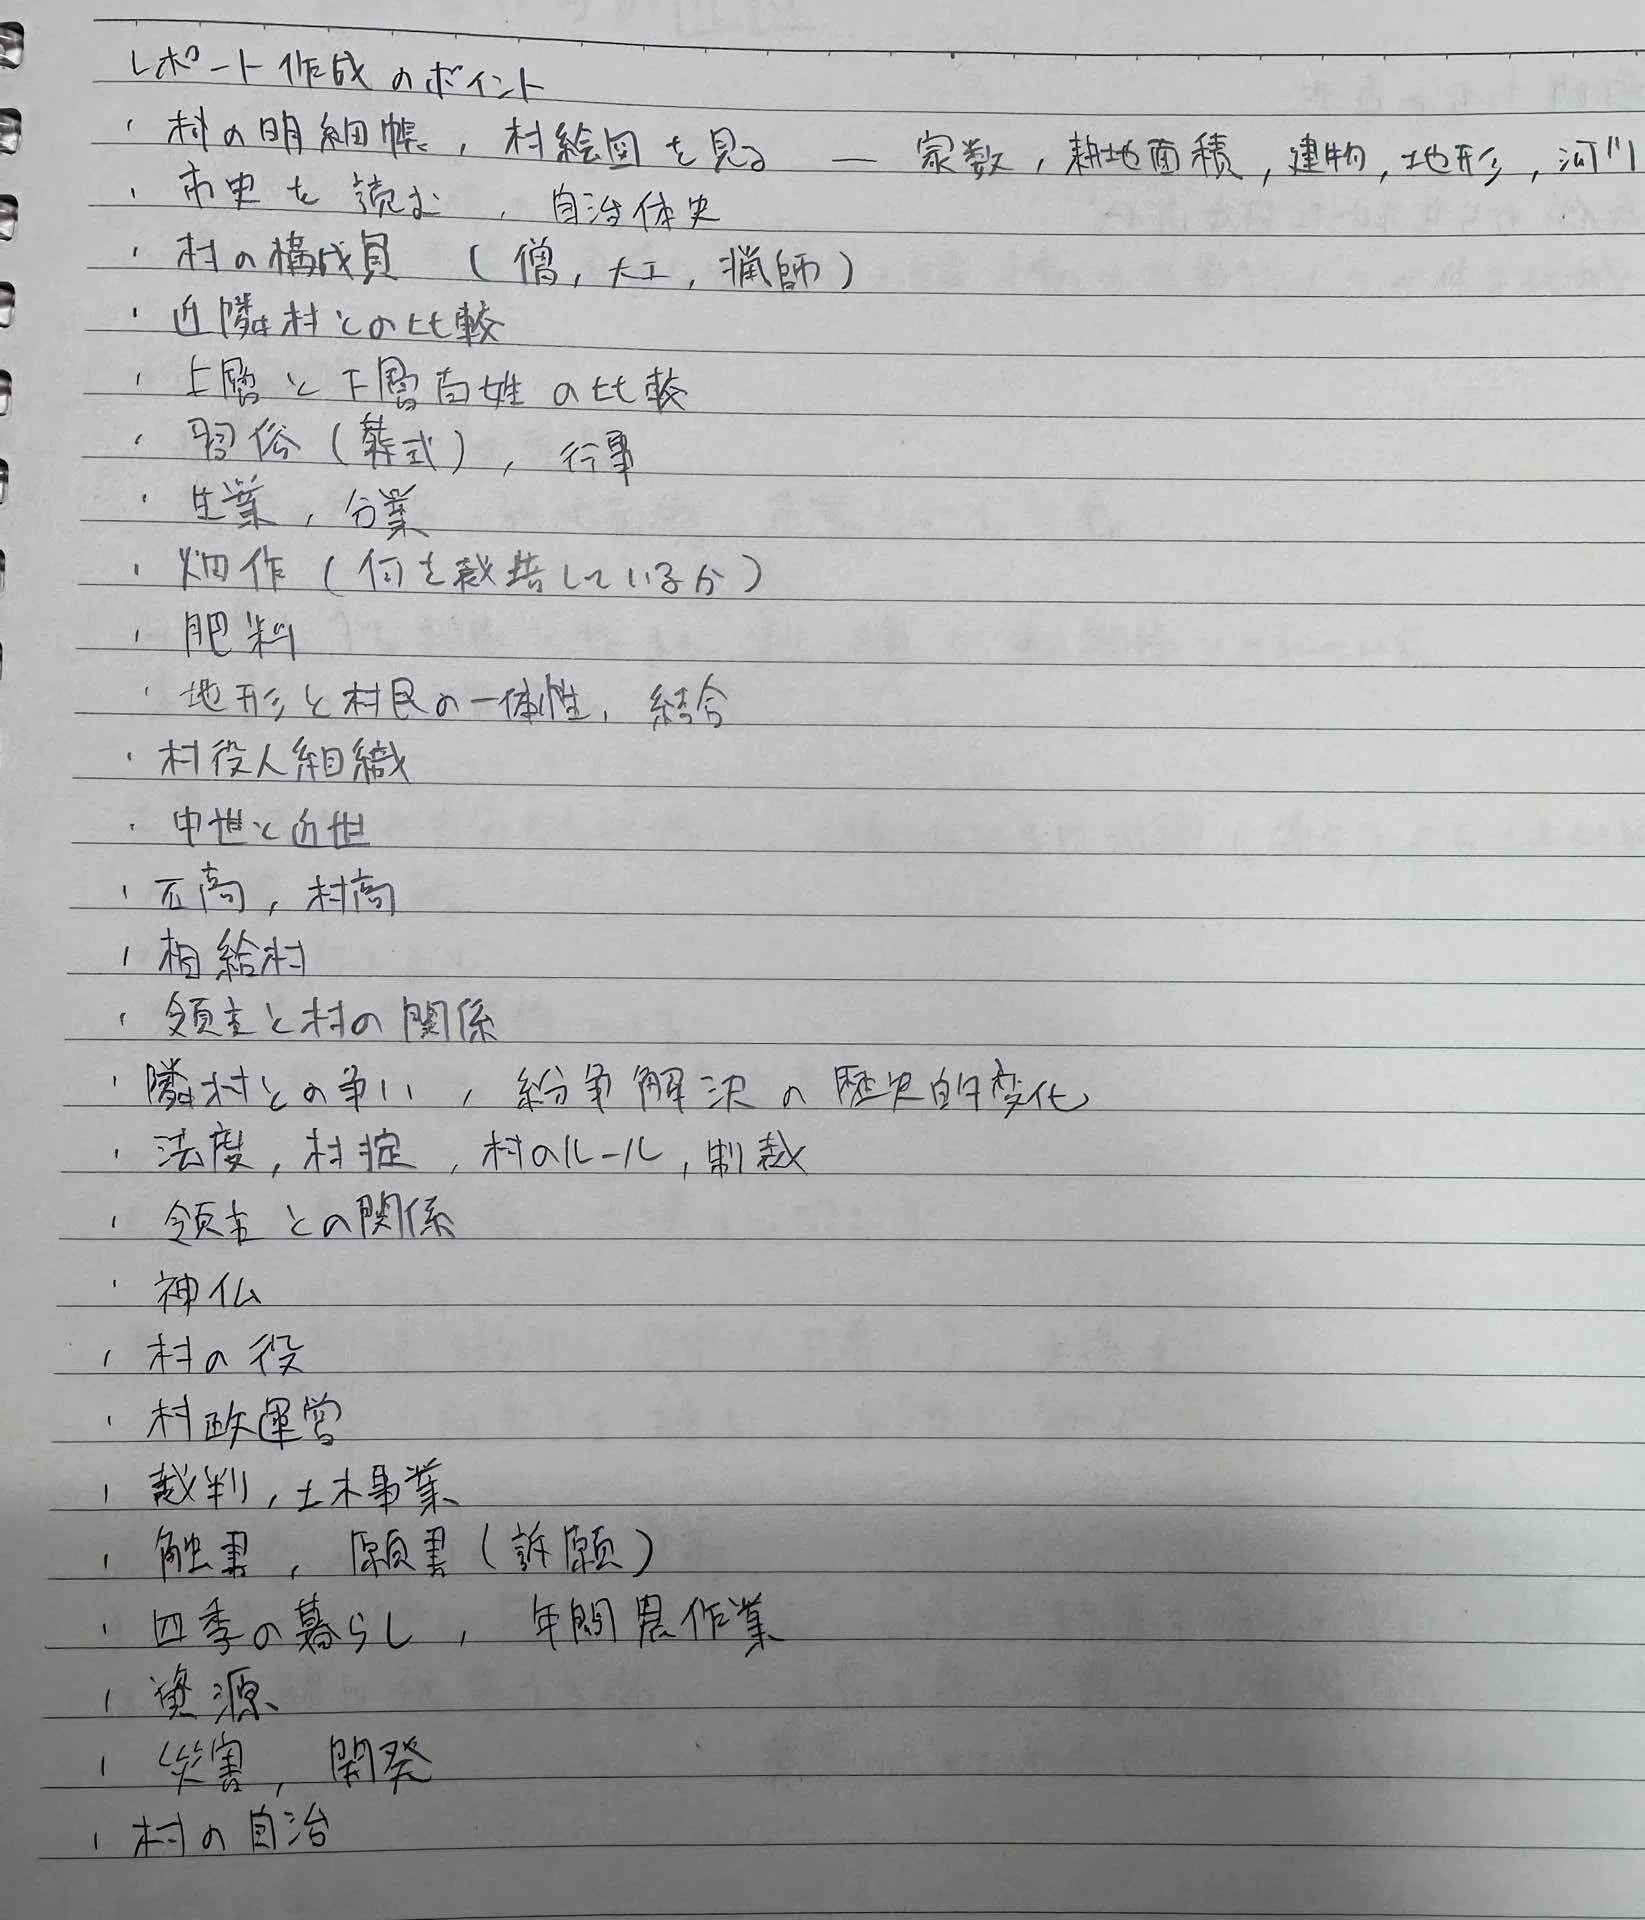 レポート作成のポイント
・村の明細帳, 村絵図を見る ― 家数, 耕地面積, 建物, 地形, 河川
・市史を読む, 自治体史
・村の構成員 (僧, 大工, 猟師)
・近隣村との比較
・上層と下層百姓の比較
・習俗(葬式), 行事
・生業, 分業
・畑作(何を栽培しているか)
・肥料
・地形と村民の一体性, 結合
・村役人組織
・中世と近世
・石高, 村高
・相給村
・領主と村の関係
・隣村との争い, 紛争解決の歴史的変化
・法度, 村掟, 村のルール, 制裁
・領主との関係
・神仏
・村の役
・村政運営
・裁判, 土木事業
・触書, 願書(訴願)
・四季の暮らし, 年間農作業
・資源
・災害, 開発
・村の自治